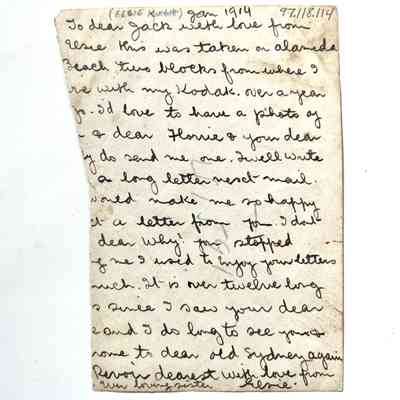 (ELSIE) Jan 1914 97/118/114
To dear Jack with love from
Elsie this was taken on alameda
Beach two blocks from where I
re with my Kodak. over a year
o. I'd love to have a photo of
& dear Florrie & your dear
y do send me one. I will write
a long letter next mail.
would make me so happy
t a letter from you. I don't
dear Why you stopped
g me I used to Enjoy your letters
much. It is over twelve long
s since I saw your dear
e and I do long to see you &
home to dear old Sydney again
Revoir dearest with love from
Your loving sister Elsie.